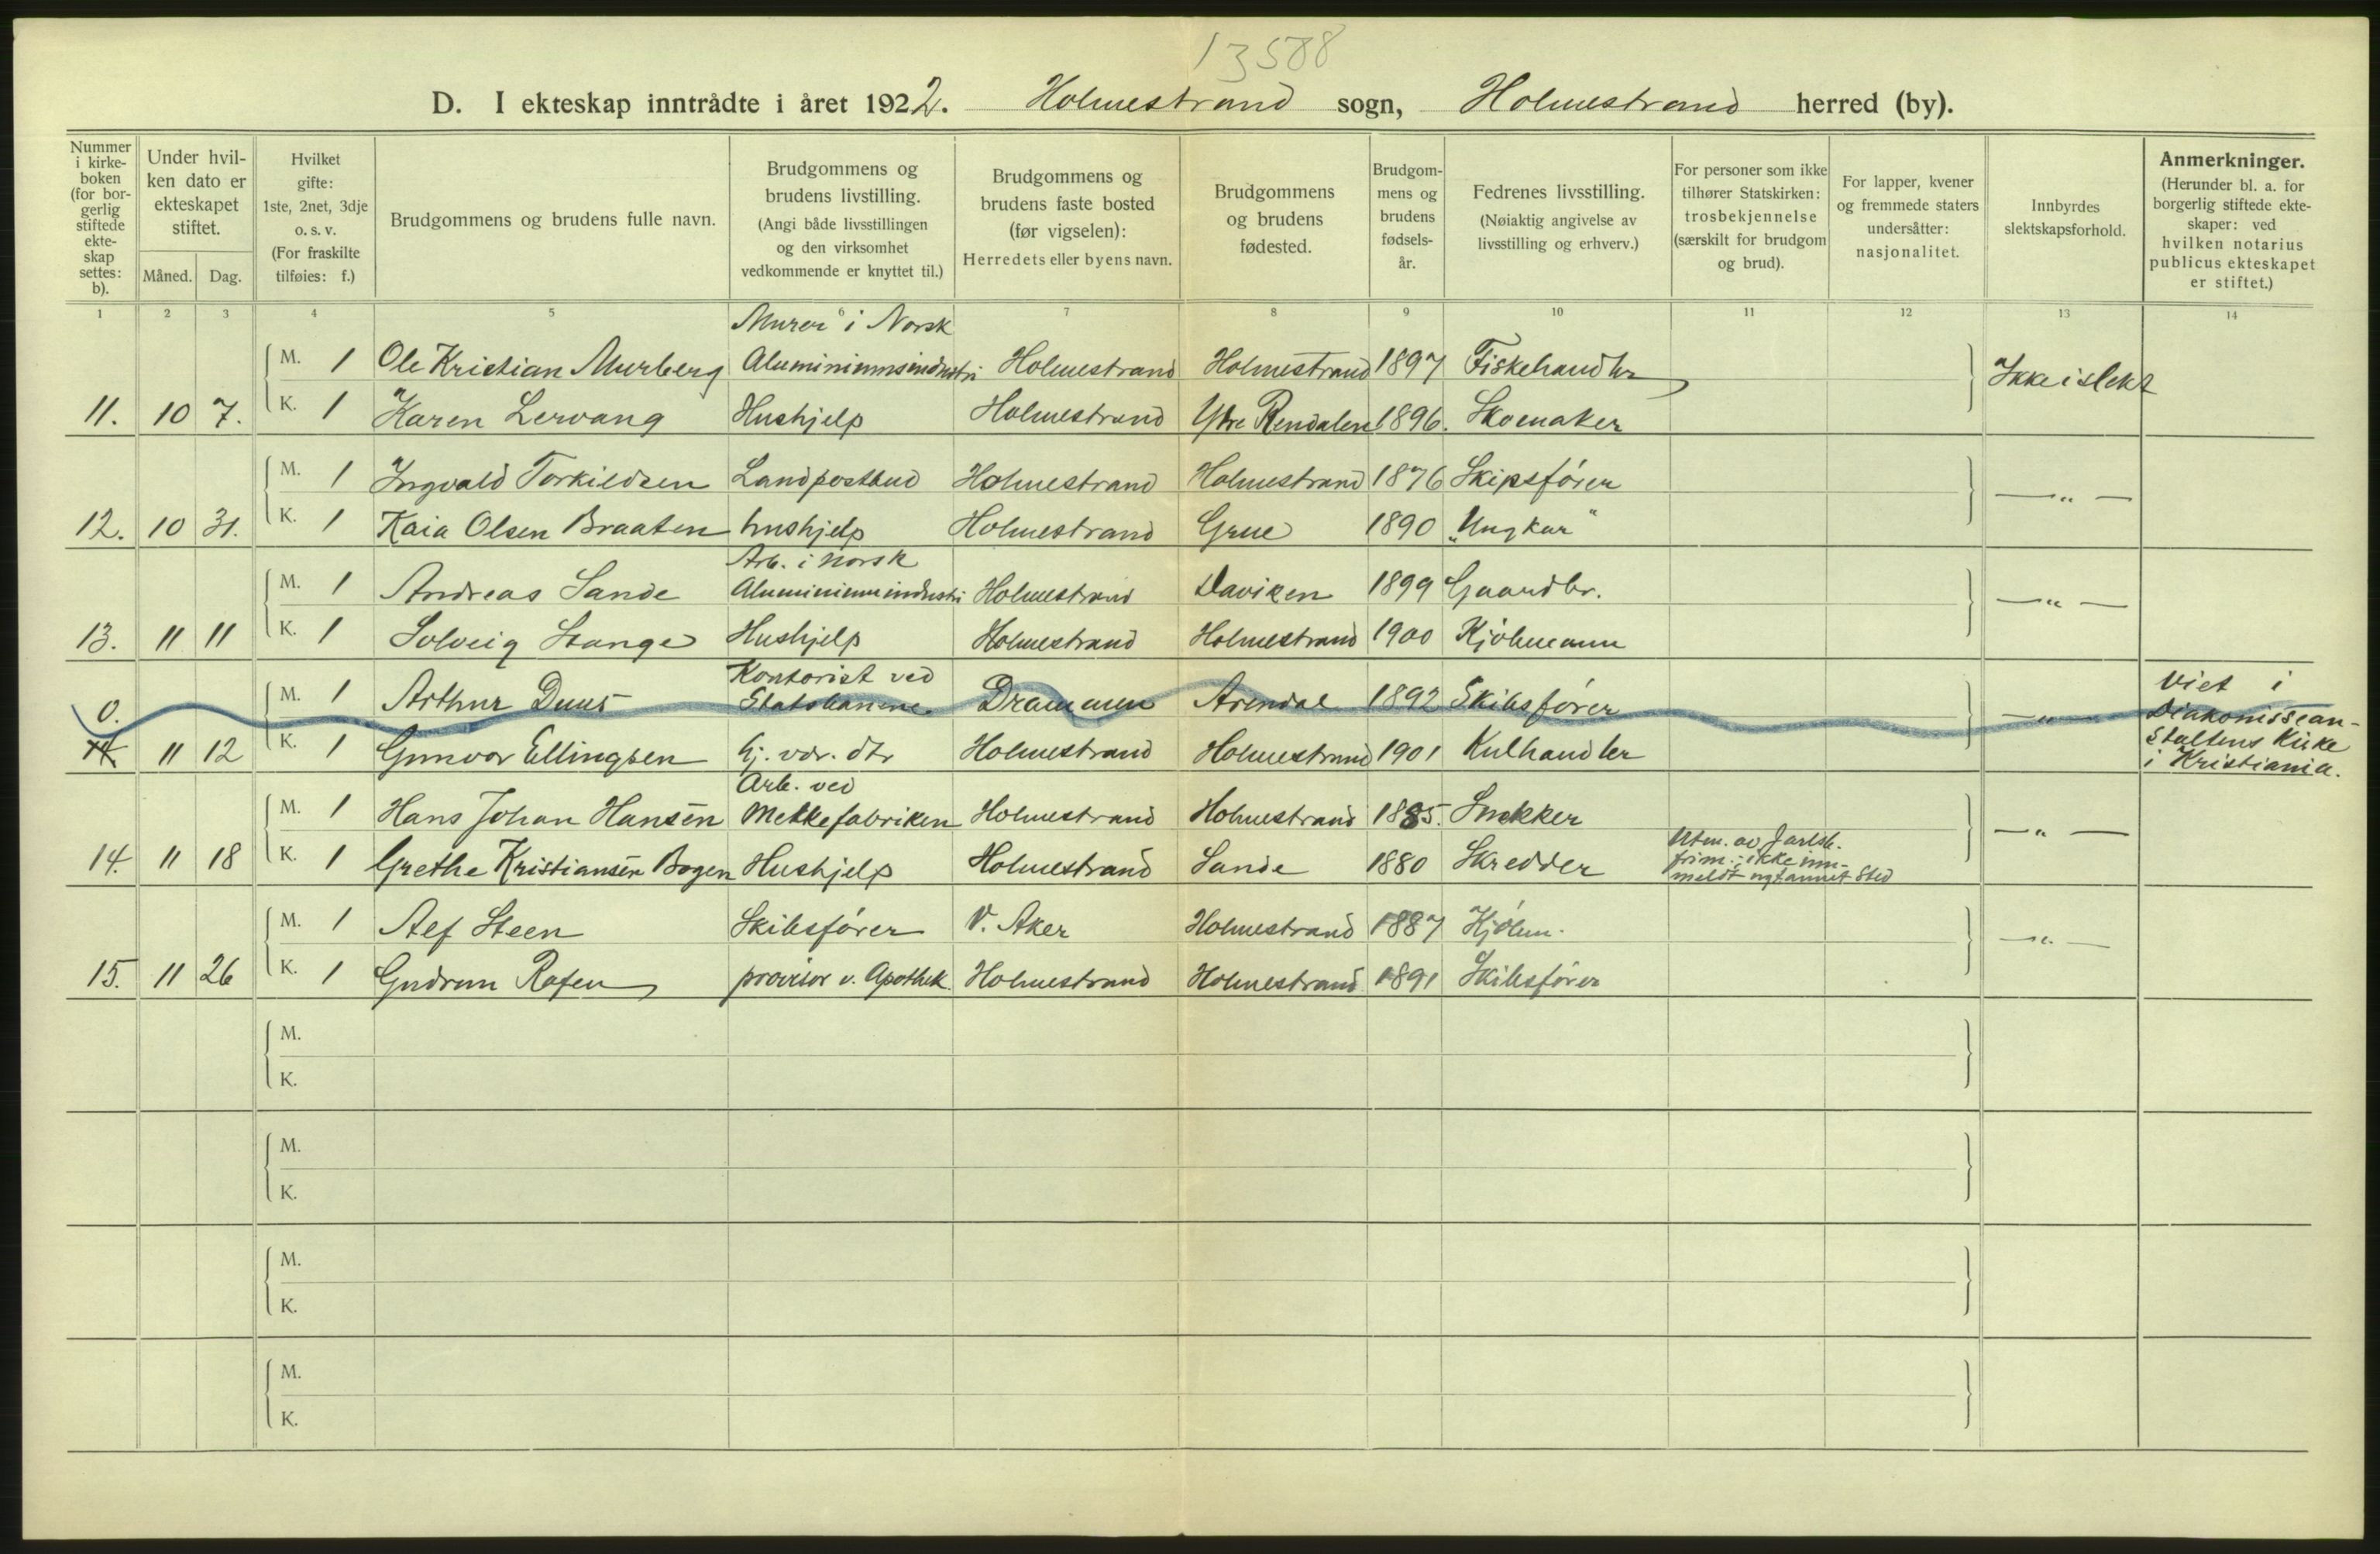 13588
D. I ekteskap inntrådte i året 1922. Holmestrand sogn, Holmestrand herred (by).
Nummer i kirke- boken (for bor- gerlig stiftede ekte- skap settes: b).
Under hvil- ken dato er ekteskapet stiftet.
Måned. Dag.
Hvilket gifte: 1ste, 2net, 3dje o. s. v. (For fraskilte tilføies: f.)
Brudgommens og brudens fulle navn.
Brudgommens og brudens livstilling. (Angi både livsstillingen og den virksomhet vedkommende er knyttet til.)
Brudgommens og brudens faste bosted (før vigselen): Herredets eller byens navn.
Brudgommens og brudens fødested.
Brudgom- mens og brudens fødsels- år.
Fedrenes livsstilling. (Nøiaktig angivelse av livsstilling og erhverv.)
For personer som ikke tilhører Statskirken: trosbekjennelse (særskilt for brudgom og brud).
For lapper, kvener og fremmede staters undersåtter: nasjonalitet.
Innbyrdes slektskapsforhold.
Anmerkninger. (Herunder bl. a. for borgerlig stiftede ekte- skaper: ved hvilken notarius publicus ekteskapet er stiftet.)
1 2 3 4 5 6 7 8 9 10 11 12 13 14
Murer i Norsk
M. 1 Ole Kristian Murberg Aluminiumsindustri Holmestrand Holmestrand 1897 Fiskehandler Ikke i slekt
11. 10 7. K. 1 Karen Lervang Hushjelp Holmestrand Ytre Rendalen 1896. Skomaker
M. 1 Ingvald Torkildsen Landpostbud Holmestrand Holmestrand 1876 Skipsfører — " —
12. 10 31. K. 1 Kaia Olsen Braaten hushjelp Holmestrand Grue 1890 „Ungkar"
Arb. i Norsk
M. 1 Andreas Sande Aluminiumindustri Holmestrand Daviken 1899 Gaardbr. — " —
13. 11 11 K. 1 Solveig Stange Hushjelp Holmestrand Holmestrand 1900 Kjøbmann
Kontorist ved
0. M. 1 Arthur Duus Statsbanene Drammen Arendal 1892 Skibsfører — " —
14. 11 12 K. 1 Gunvor Ellingsen Hj. vær. dtr Holmestrand Holmestrand 1901 Kulhandler
Viet i
Diakonissean-
staltens Kirke
i Kristiania.
Arb. ved
M. 1 Hans Johan Hansen Mekkefabriken Holmestrand Holmestrand 1885. Snekker — " —
14. 11 18 K. 1 Grethe Kristiansen Bogen Hushjelp Holmestrand Sande 1880 Skredder
Utm. av Jarlsb.
frim.; ikke inn-
meldt nyt annet sted
M. 1 Alf Steen Skibsfører V. Aker Holmestrand 1887 Kjøbm. — " —
15. 11 26 K. 1 Gudrun Rafen provisor v. Apothek. Holmestrand Holmestrand 1891 Skibsfører
M.
K.
M.
K.
M.
K.
M.
K.